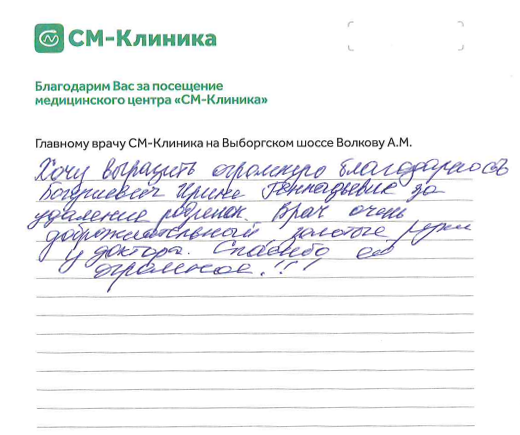 СМ-Клиника
Благодарим Вас за посещение
медицинского центра «СМ-Клиника»
Главному врачу СМ-Клиника на Выборгском шоссе Волкову А.М.
Хочу выразить огромную благодарность
Ирине Геннадьевне за
удаление родинок. Врач очень
доброжелательный, золотые руки
у доктора. Спасибо ей
огромное!!!